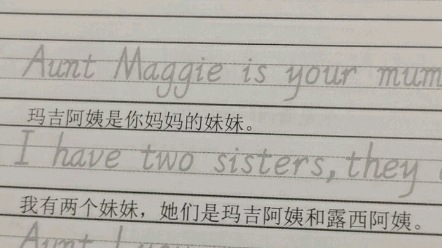 Aunt Maggie is your mum
玛吉阿姨是你妈妈的妹妹。
I have two sisters, they
我有两个妹妹，她们是玛吉阿姨和露西阿姨。
Aunt Lucy